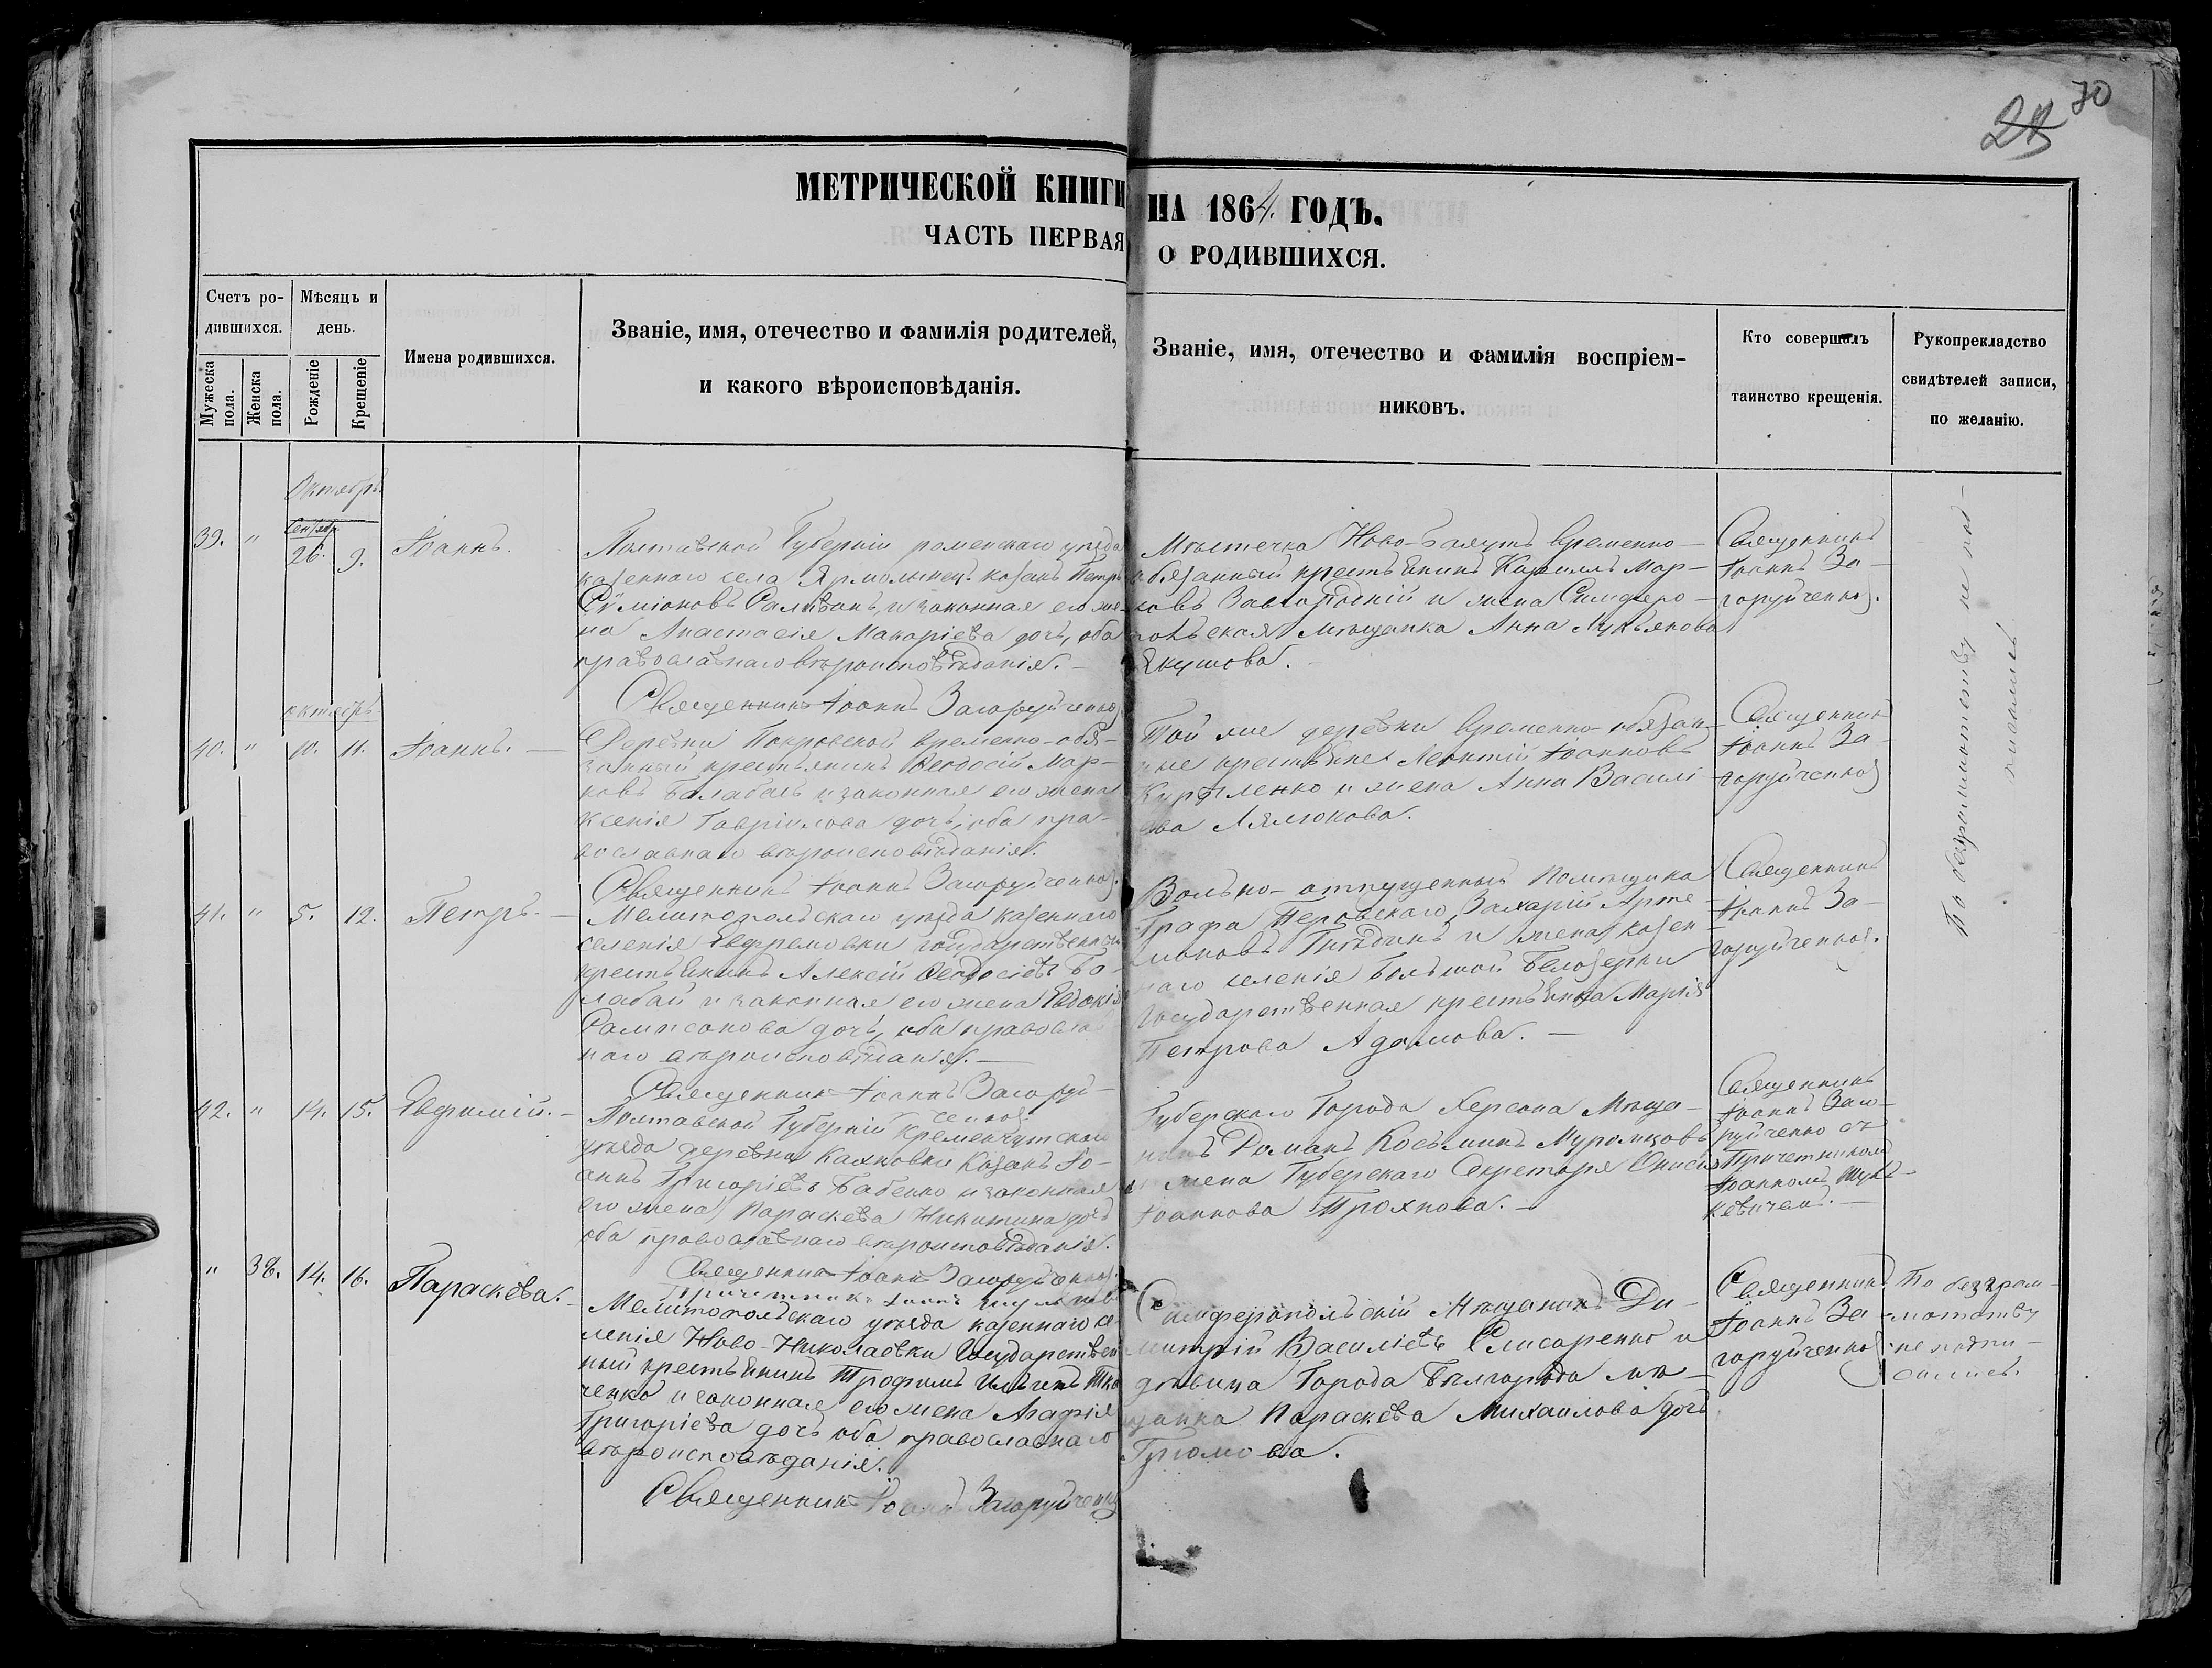 70
МЕТРИЧЕСКОЙ КНИГИ НА 1864. ГОДЪ.
ЧАСТЬ ПЕРВАЯ О РОДИВШИХСЯ.
Счетъ ро-
дившихся.
Мужеска пола.
Женска пола.
Мѣсяцъ и
день.
Рожденіе
Крещеніе
Имена родившихся.
Званіе, имя, отечество и фамилія родителей,
и какого вѣроисповѣданія.
Званіе, имя, отечество и фамилія воспріем-
никовъ.
Кто совершалъ
таинство крещенія.
Рукоприкладство
свидѣтелей записи,
по желанію.
Октябрь
Сентябр.
39. " 26. 9. Іоаннъ.
Полтавской Губерніи роменскаго уѣзда
казеннаго села Ярмолинец казакъ Петръ
Сѵміоновъ и законная его же-
на Анастасія Макаріева дочь, оба
православнаго вѣроисповѣданія. —
Священникъ Іоаннъ Загоруйченко
Мѣстечка Ново- временно —
обязанный крестьянинъ Кириллъ Мар-
ковъ Завгородній и жена Симферо-
польская мѣщанка Анна Лукьянова
Якушова.
Священникъ
Іоаннъ За-
горуйченко.
октябрь
40. " 10. 11. Іоаннъ. —
Деревни Покровской временно-обя-
занный крестьянинъ Ѳеодосій Мар-
ковъ Балабась и законная его жена
Ксенія Гавріилова дочь, оба пра-
вославнаго вѣроисповѣданія.
Священникъ Іоаннъ Загоруйченко.
Той же деревни временно-обязан-
ные крестьяне Леонтій Іоанновъ
и жена Анна Василі-
ева Лялюкова.
Священникъ
Іоаннъ За-
горуйченко
41. " 5. 12. Петръ. —
Мелитопольскаго уѣзда казеннаго
селенія Ефремовки государственный
крестьянинъ Алексій Ѳеодосіевъ Ба-
лабай и законная его жена Евдокія
Сампсонова дочь, оба православ-
наго вѣроисповѣданія. —
Священникъ Іоаннъ Загоруй-
ченко
Вольно-отпущенный помѣщика
Графа Перовскаго Захарій Арте-
моновъ и жена казен-
наго селенія Большой Белозерки
Государственная крестьянка Марія
Петрова Адамова. —
Священникъ
Іоаннъ За-
горуйченко.
42. " 14. 15. Евфимій. —
Полтавской Губерніи Кременчугскаго
уѣзда деревни Казакъ Іо-
аннъ Григоріевъ Бабенко и законная
его жена Параскева Никитина дочь
оба православнаго вѣроисповѣданія.
Священникъ Іоаннъ Загоруйченко.
Причетникъ Іоаннъ
Губерскаго Города Херсона Мѣща-
нинъ Романъ Косьминъ Муромцовъ
и жена Губерскаго Секретаря
Іоаннова —
Священникъ
Іоаннъ Заго-
руйченко съ
Причетникомъ
Іоанномъ
" 38. 14. 16. Параскева. —
Мелитопольскаго уѣзда казеннаго се-
ленія Ново-Николаевки Государствен-
ный крестьянинъ Трофимъ Ильинъ Тка-
ченко и законная его жена Агафія
Григоріева дочь оба православнаго
вѣроисповѣданія.
Священникъ Іоаннъ Загоруйченко
Симферопольскій Мѣщанинъ Ди-
митрій Василіевъ Слисаренко и
дѣвица Города Белгорода мѣ-
щанка Параскева Михаилова дочь
Священникъ
Іоаннъ За-
горуйченко
По безграм-
мотству
не подпи-
сались.
По безграммотству не под-
писались